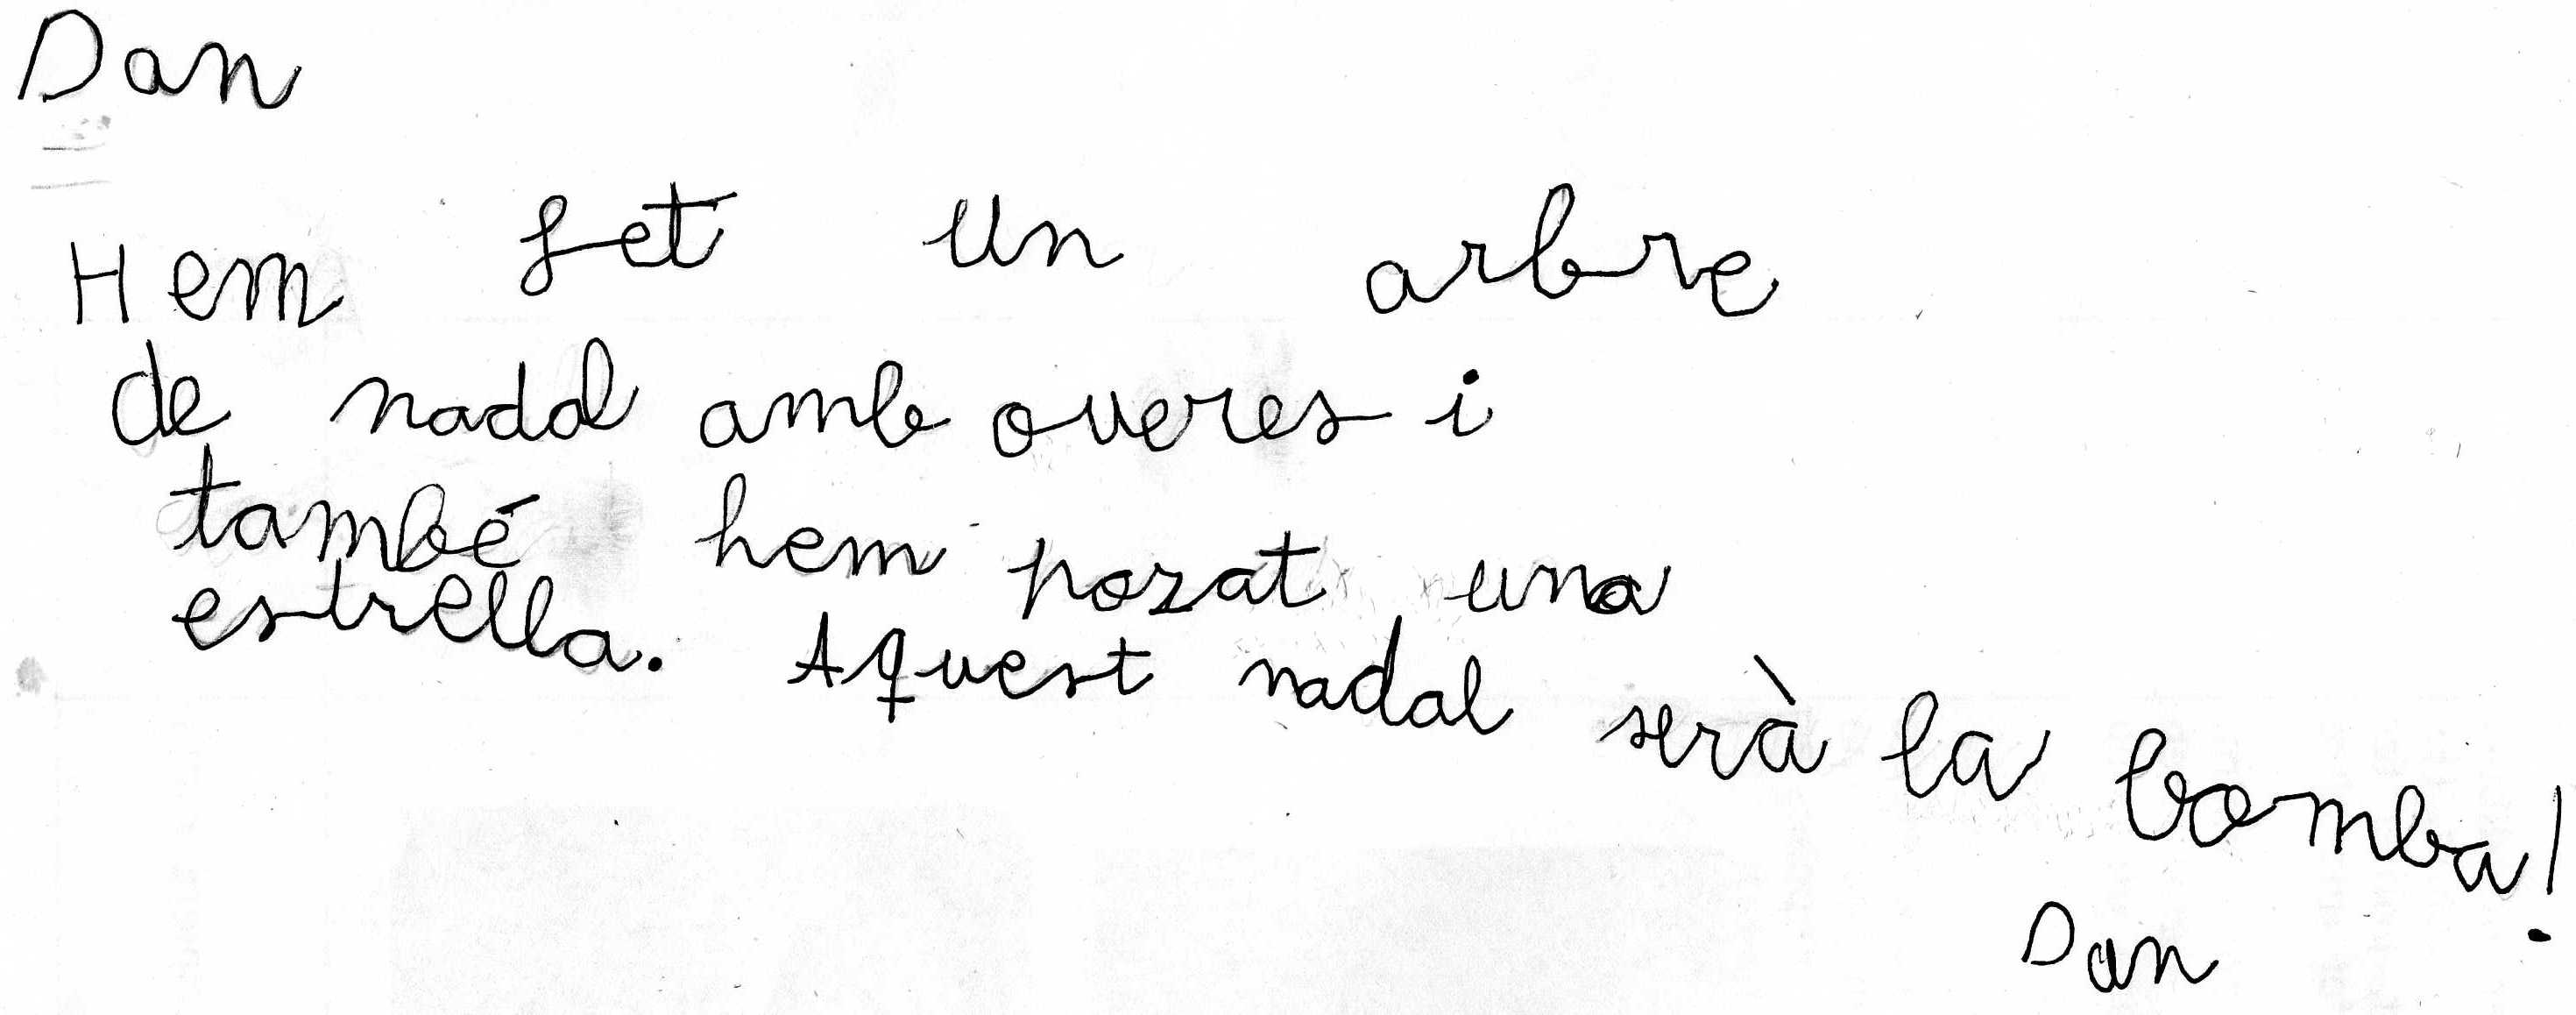 Dan
Hem fet un arbre
de nadal amb oueres i
també hem pozat una
estrella. Aquest nadal serà la bomba!
Dan